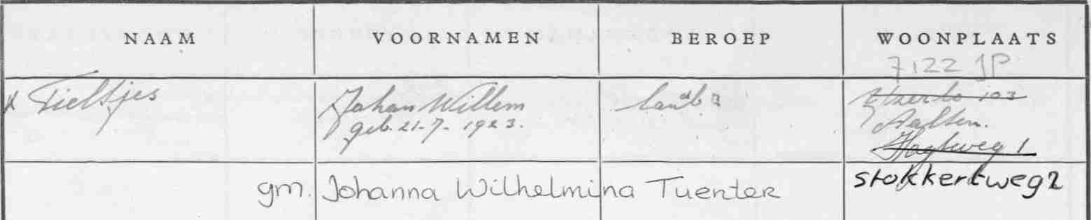 NAAM VOORNAMEN BEROEP WOONPLAATS
7122 JP
x Tieltjes Johan Willem landb.
geb. 21-7-1923. Aalten.
gm. Johanna Wilhelmina Tuenter stokkertweg 2